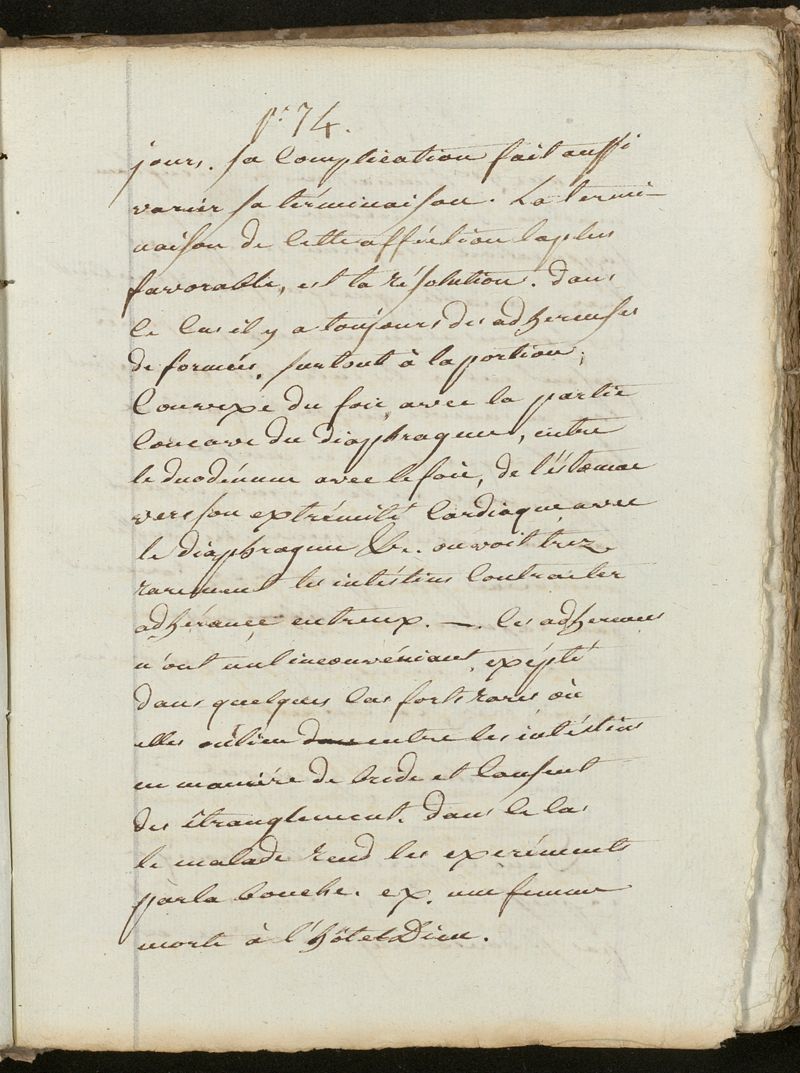 p. 74.
jours. sa complication fait aussi
varier sa términaison. La termi-
naison de cette afféction la plus
favorable, est la résolution. dans
ce cas il y a toujours des adherenses
de formées, surtout à la portion,
Convexe du foie, avec la partie
Concave du diaphragme, entre
le duodénum avec le foie, de l'éstomac
vers son extrémité Cardiaque avec
le diaphragme &c. on voit trez
rarement les intéstins Contracter
adhérance entreux. —. les adherences
n'ont nul inconvéniant, exépté
dans quelques cas forts rares où
elles ont lieu entre les intéstins
en maniére de bride et Causent
des étranglement. dans ce cas
le malade rend les exeréments
par la bouche. ex. une femme
morte à l'hôtel Dieu.